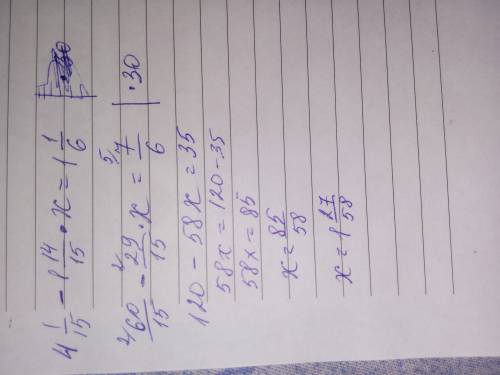 4 1/15 - 1 14/15 · x = 1 1/6
²⁄ 60/15 - ²⁄ 29/15 · x = ⁵⁄ 7/6 | · 30
120 - 58x = 35
58x = 120 - 35
58x = 85
x = 85/58
x = 1 27/58